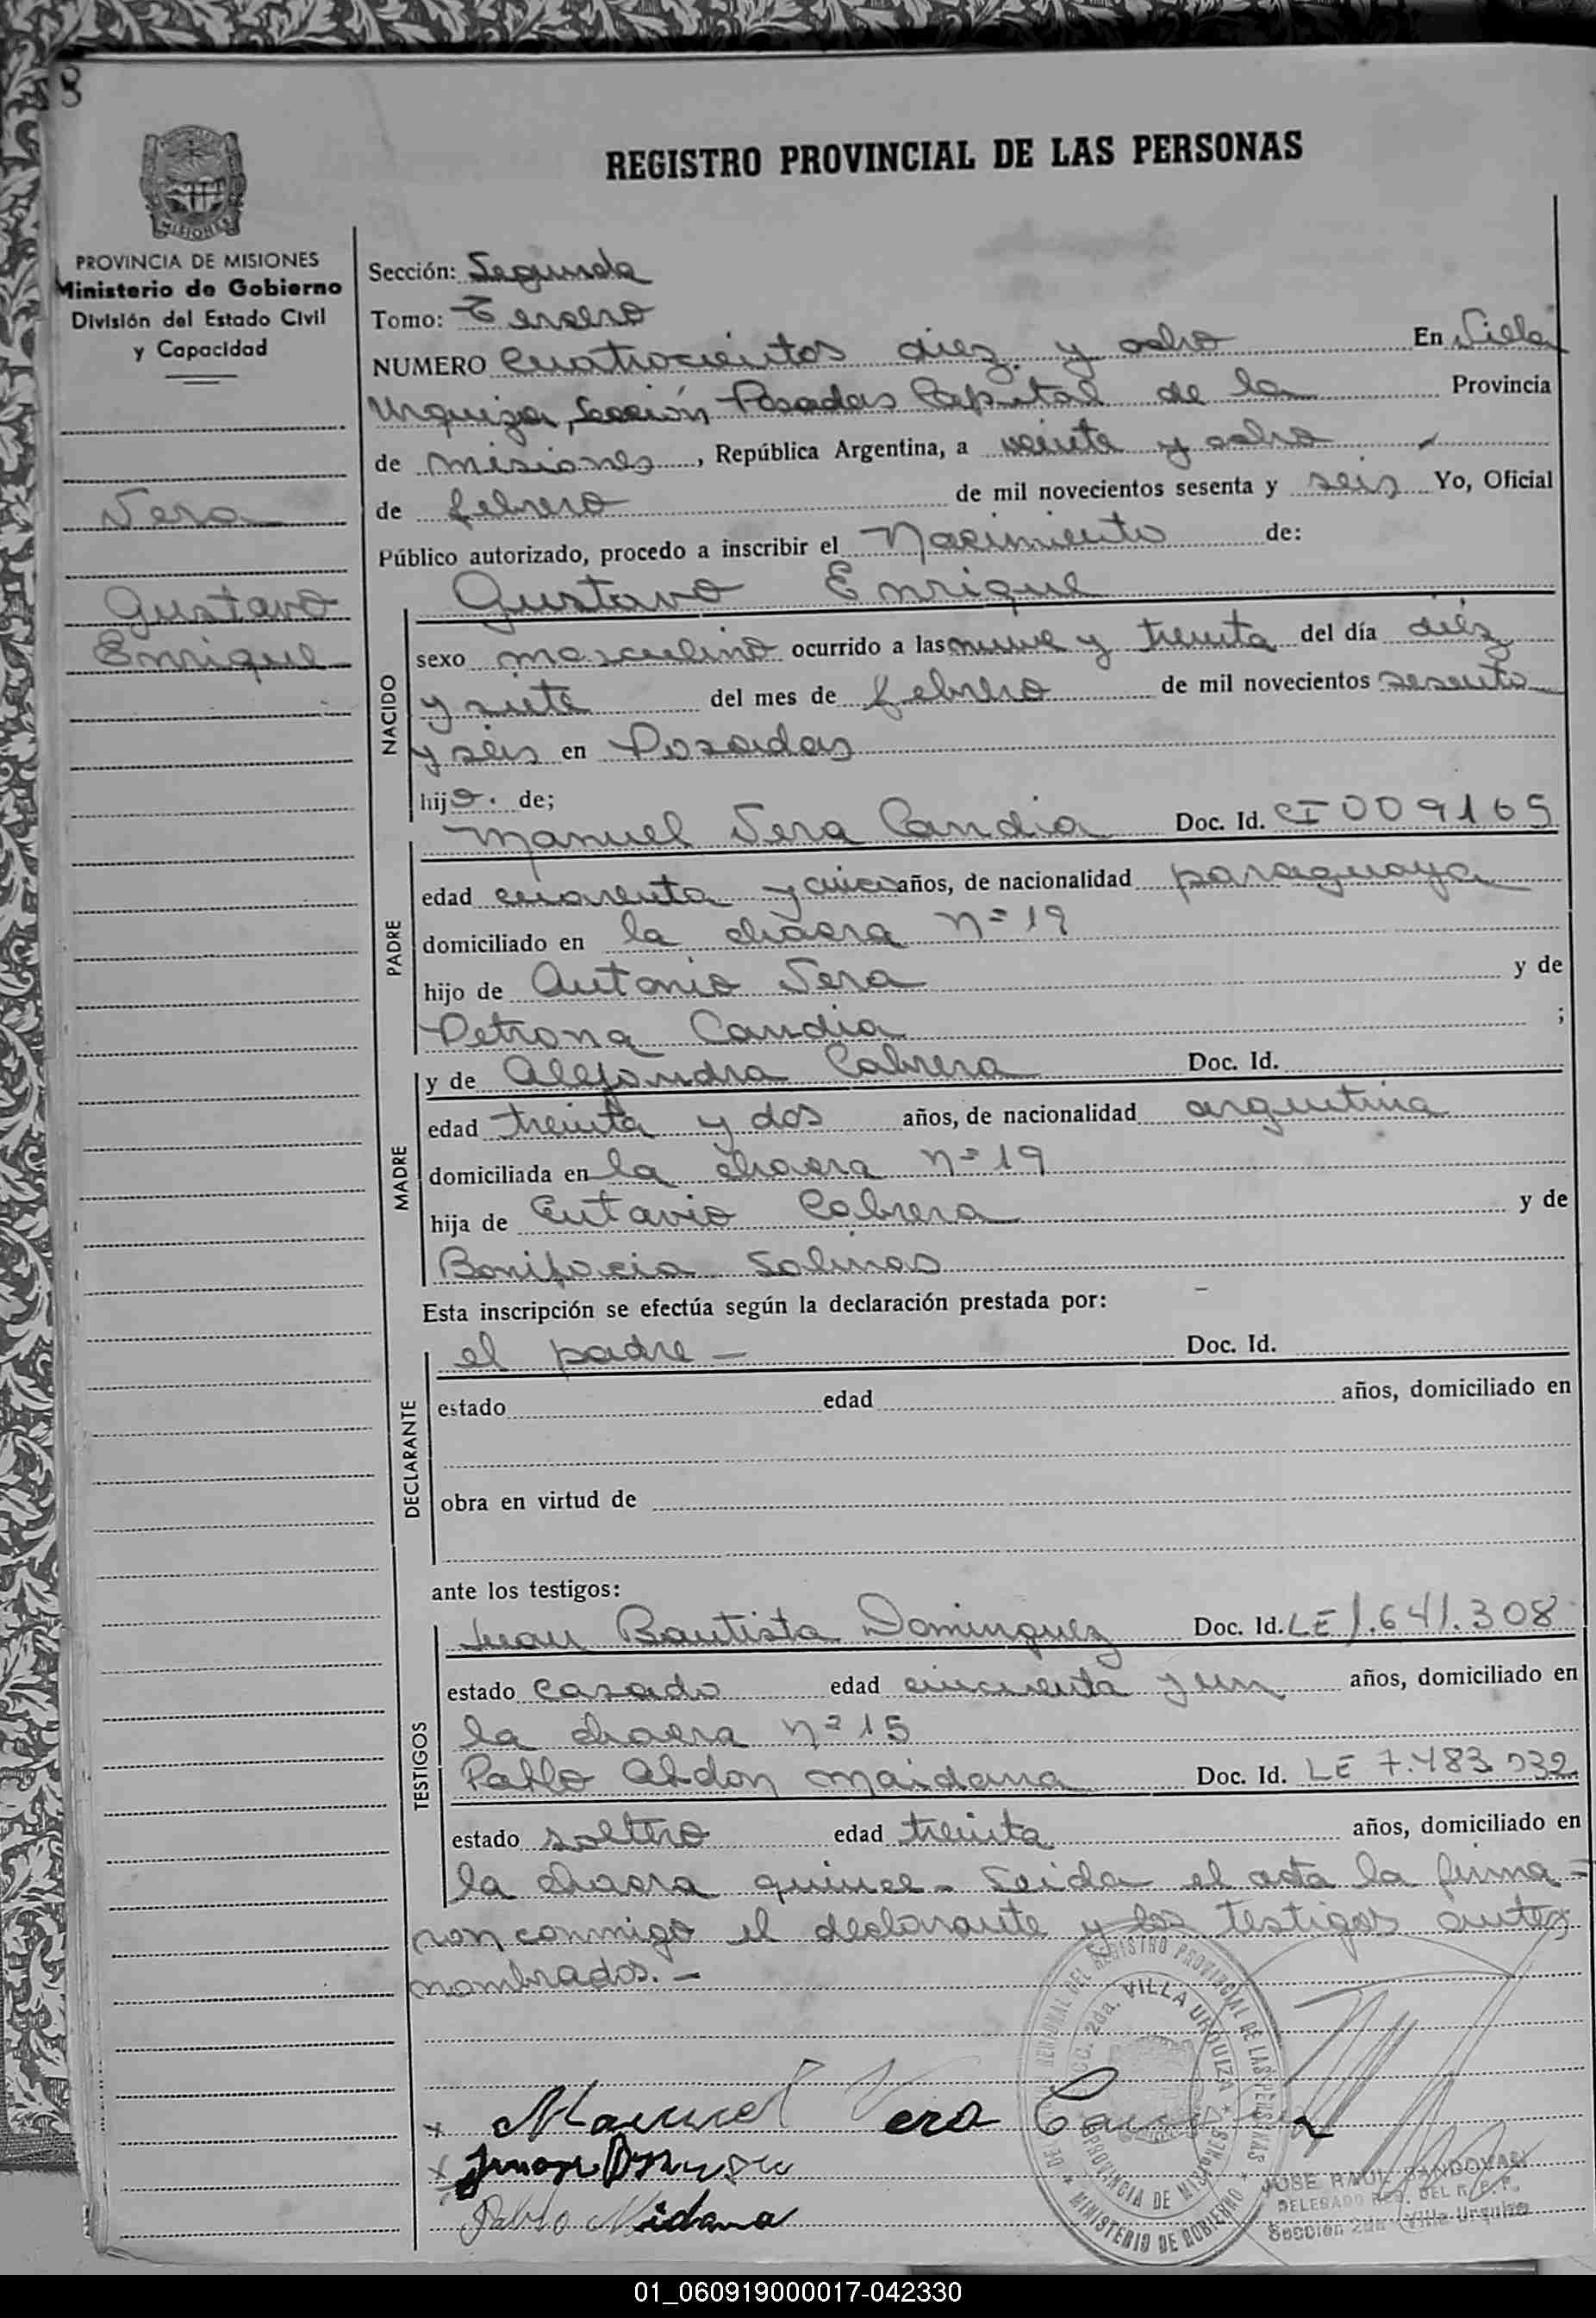 8
MISIONES
PROVINCIA DE MISIONES
Ministerio de Gobierno
División del Estado Civil
y Capacidad
Vera
Gustavo
Enrique
REGISTRO PROVINCIAL DE LAS PERSONAS
Sección: Segunda
Tomo: Tercero
NUMERO Cuatrocientos diez y ocho En Villa
Urquiza, Sección Posadas Capital de la Provincia
de Misiones, República Argentina, a veinte y ocho
de febrero de mil novecientos sesenta y seis Yo, Oficial
Público autorizado, procedo a inscribir el Nacimiento de:
NACIDO
Gustavo Enrique
sexo masculino ocurrido a las nueve y treinta del día diéz
y siete del mes de febrero de mil novecientos sesenta
y seis en Posadas
hijo. de;
PADRE
Manuel Vera Candia Doc. Id. CI 009165
edad cuarenta y cinco años, de nacionalidad paraguaya
domiciliado en la chacra nº 19
hijo de Antonio Vera y de
Petrona Candia ;
MADRE
y de Alejandra Cabrera Doc. Id.
edad treinta y dos años, de nacionalidad argentina
domiciliada en la chacra nº 19
hija de Eutavio Cabrera y de
Bonifacia Salinas
Esta inscripción se efectúa según la declaración prestada por:
DECLARANTE
el padre — Doc. Id.
estado edad años, domiciliado en
obra en virtud de
ante los testigos:
TESTIGOS
Juan Bautista Dominguez Doc. Id. LE 1.641.308
estado casado edad cincuenta y un años, domiciliado en
la chacra nº 15
Pablo Abdon Maidana Doc. Id. LE 7.483.032
estado soltero edad treinta años, domiciliado en
la chacra quince - Leida el acta la firma-
ron conmigo el declarante y los testigos antes
nombrados. -
x Manuel Vera Candia
x Juan
Pablo Midana
REGIONAL DEL REGISTRO PROVINCIAL DE LAS PERSONAS
MINISTERIO DE GOBIERNO
SECC. 2da. VILLA URQUIZA
PROVINCIA DE MISIONES
JOSE RAUL SANDOVAL
DELEGADO REG. DEL R. P. P.
Sección 2da (Villa Urquiza
01_060919000017-042330